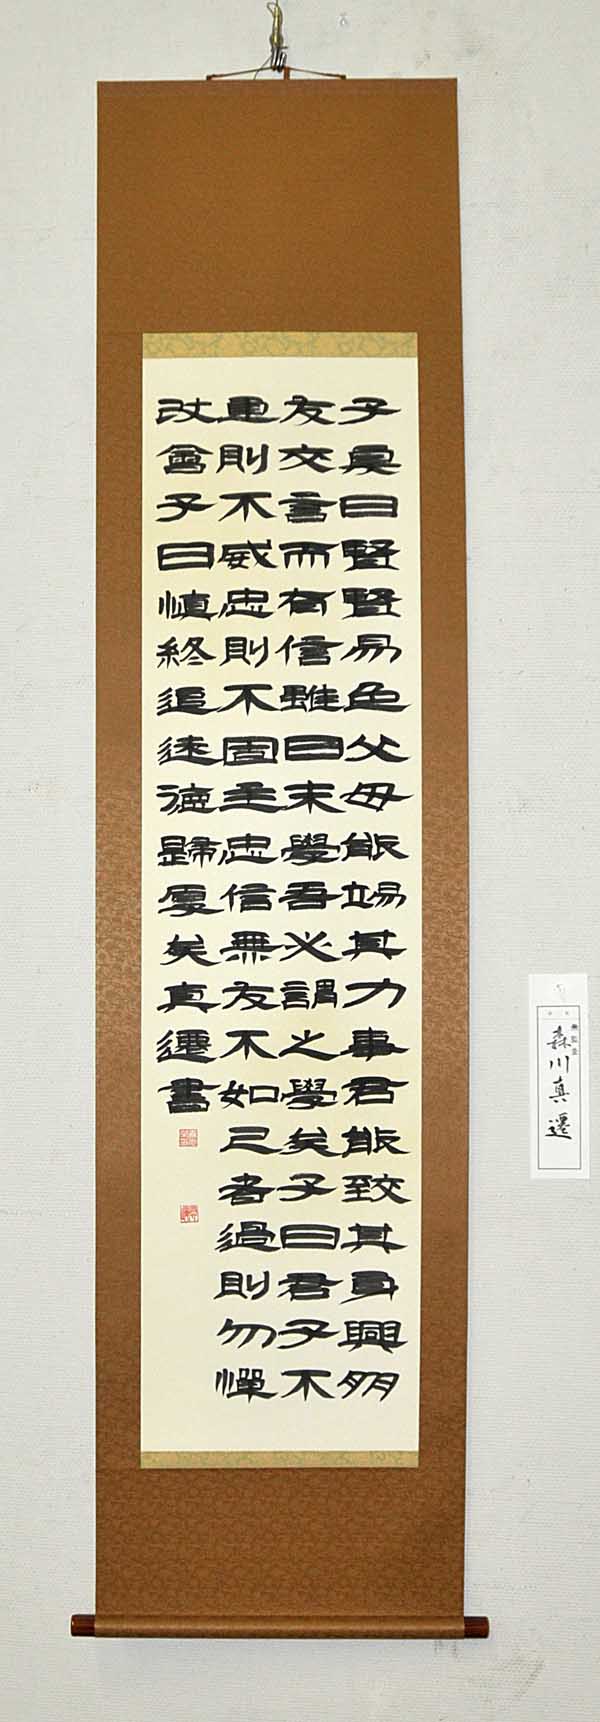 子夏曰賢賢易色父母能竭其力事君能致其身與朋
友交言而有信雖曰未學吾必謂之學矣子曰君子不
重則不威忠則不固主忠信無友不如己者過則勿憚
改曾子曰慎終追遠德歸厚矣真遷書
無鑑査
森川真遷